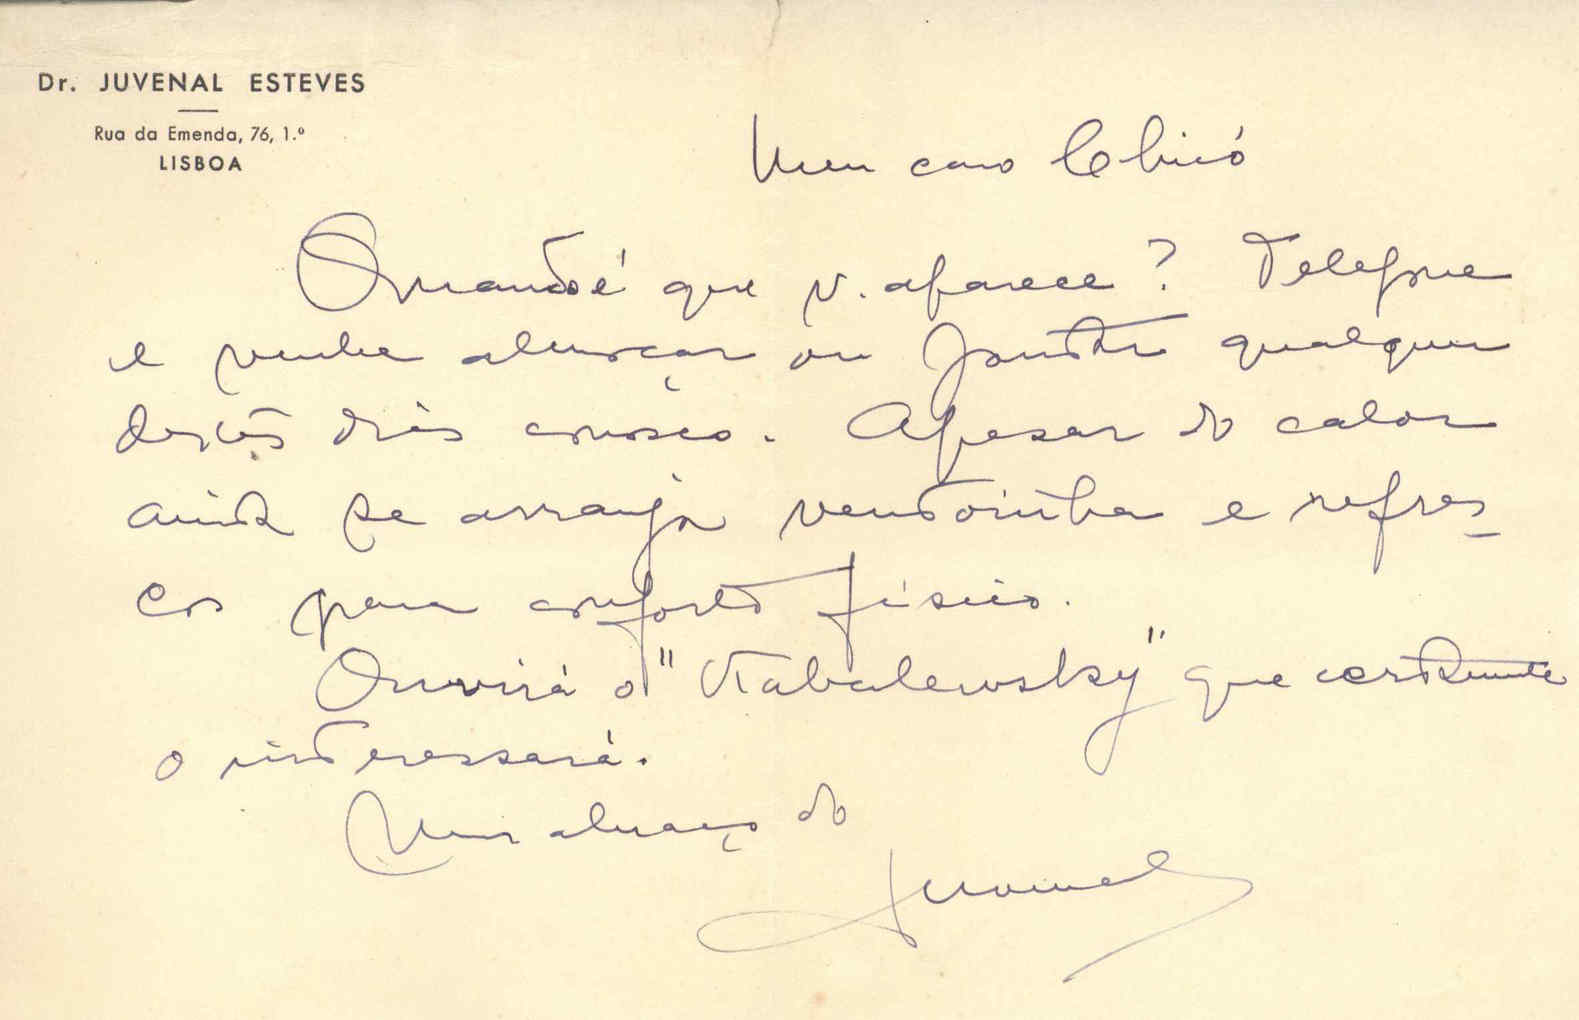 Dr. JUVENAL ESTEVES
Rua da Emenda, 76, 1.º
LISBOA
Meu caro Chicó
Quando é que v. aparece? Telefone
e venha almoçar ou jantar qualquer
destes dias conosco. Apesar do calor
ainda se arranja ventoinha e refres-
cos para conforto físico.
Ouvirá o "Kabalewsky" que certamente
o interessará.
Um abraço do
Juvenal